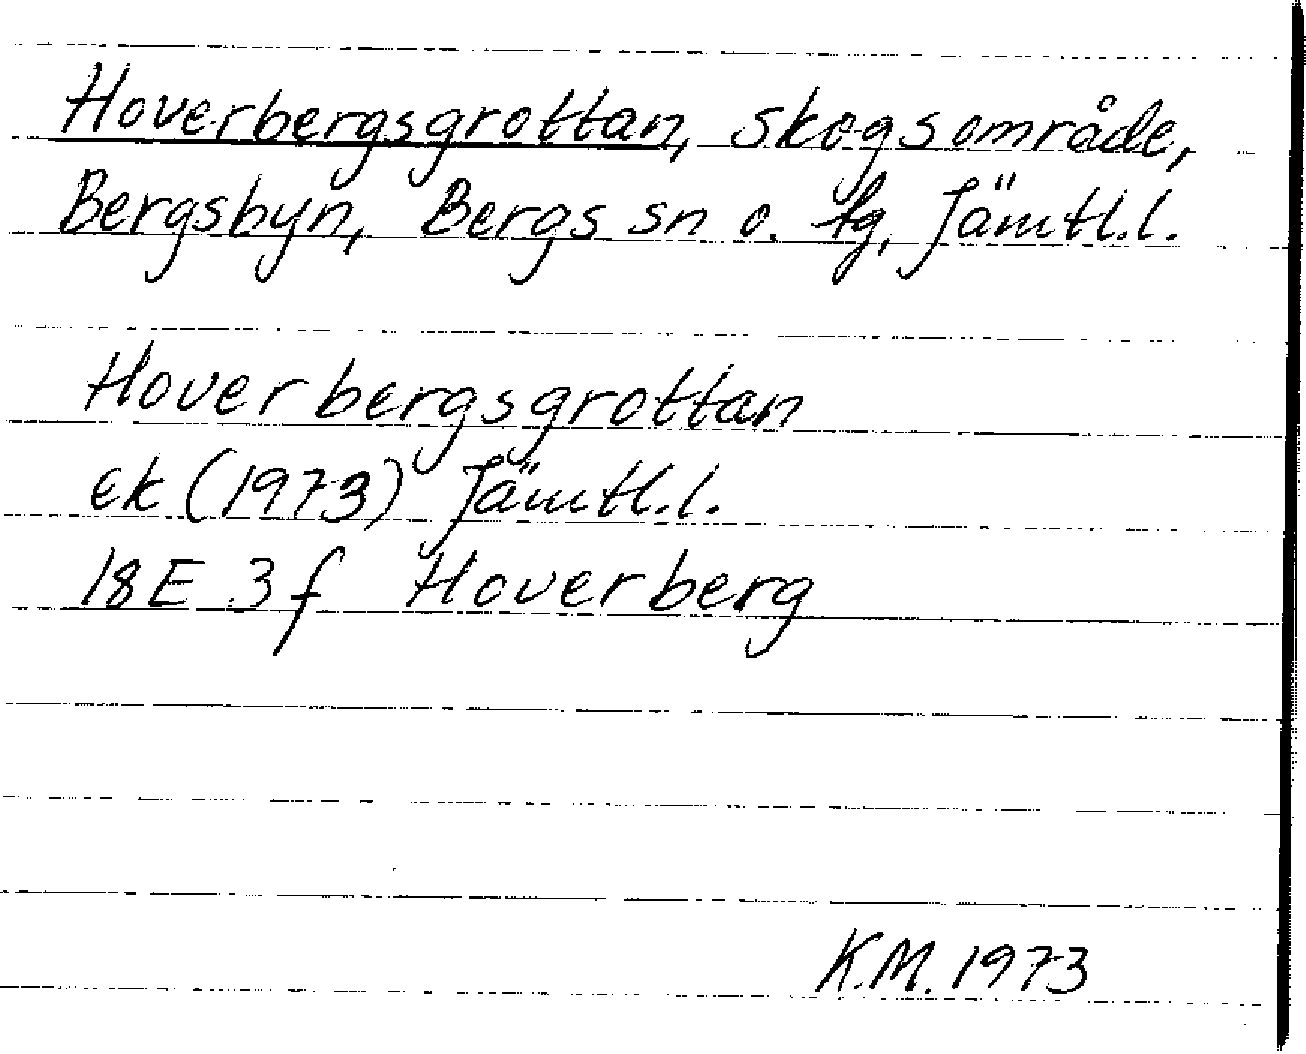 Hoverbergsgrottan, skogsområde,
Bergsbyn, Bergs sn o. tg, Jämtl.l.
Hoverbergsgrottan
Ek (1973) Jämtl.l.
18E 3f Hoverberg
K.M. 1973